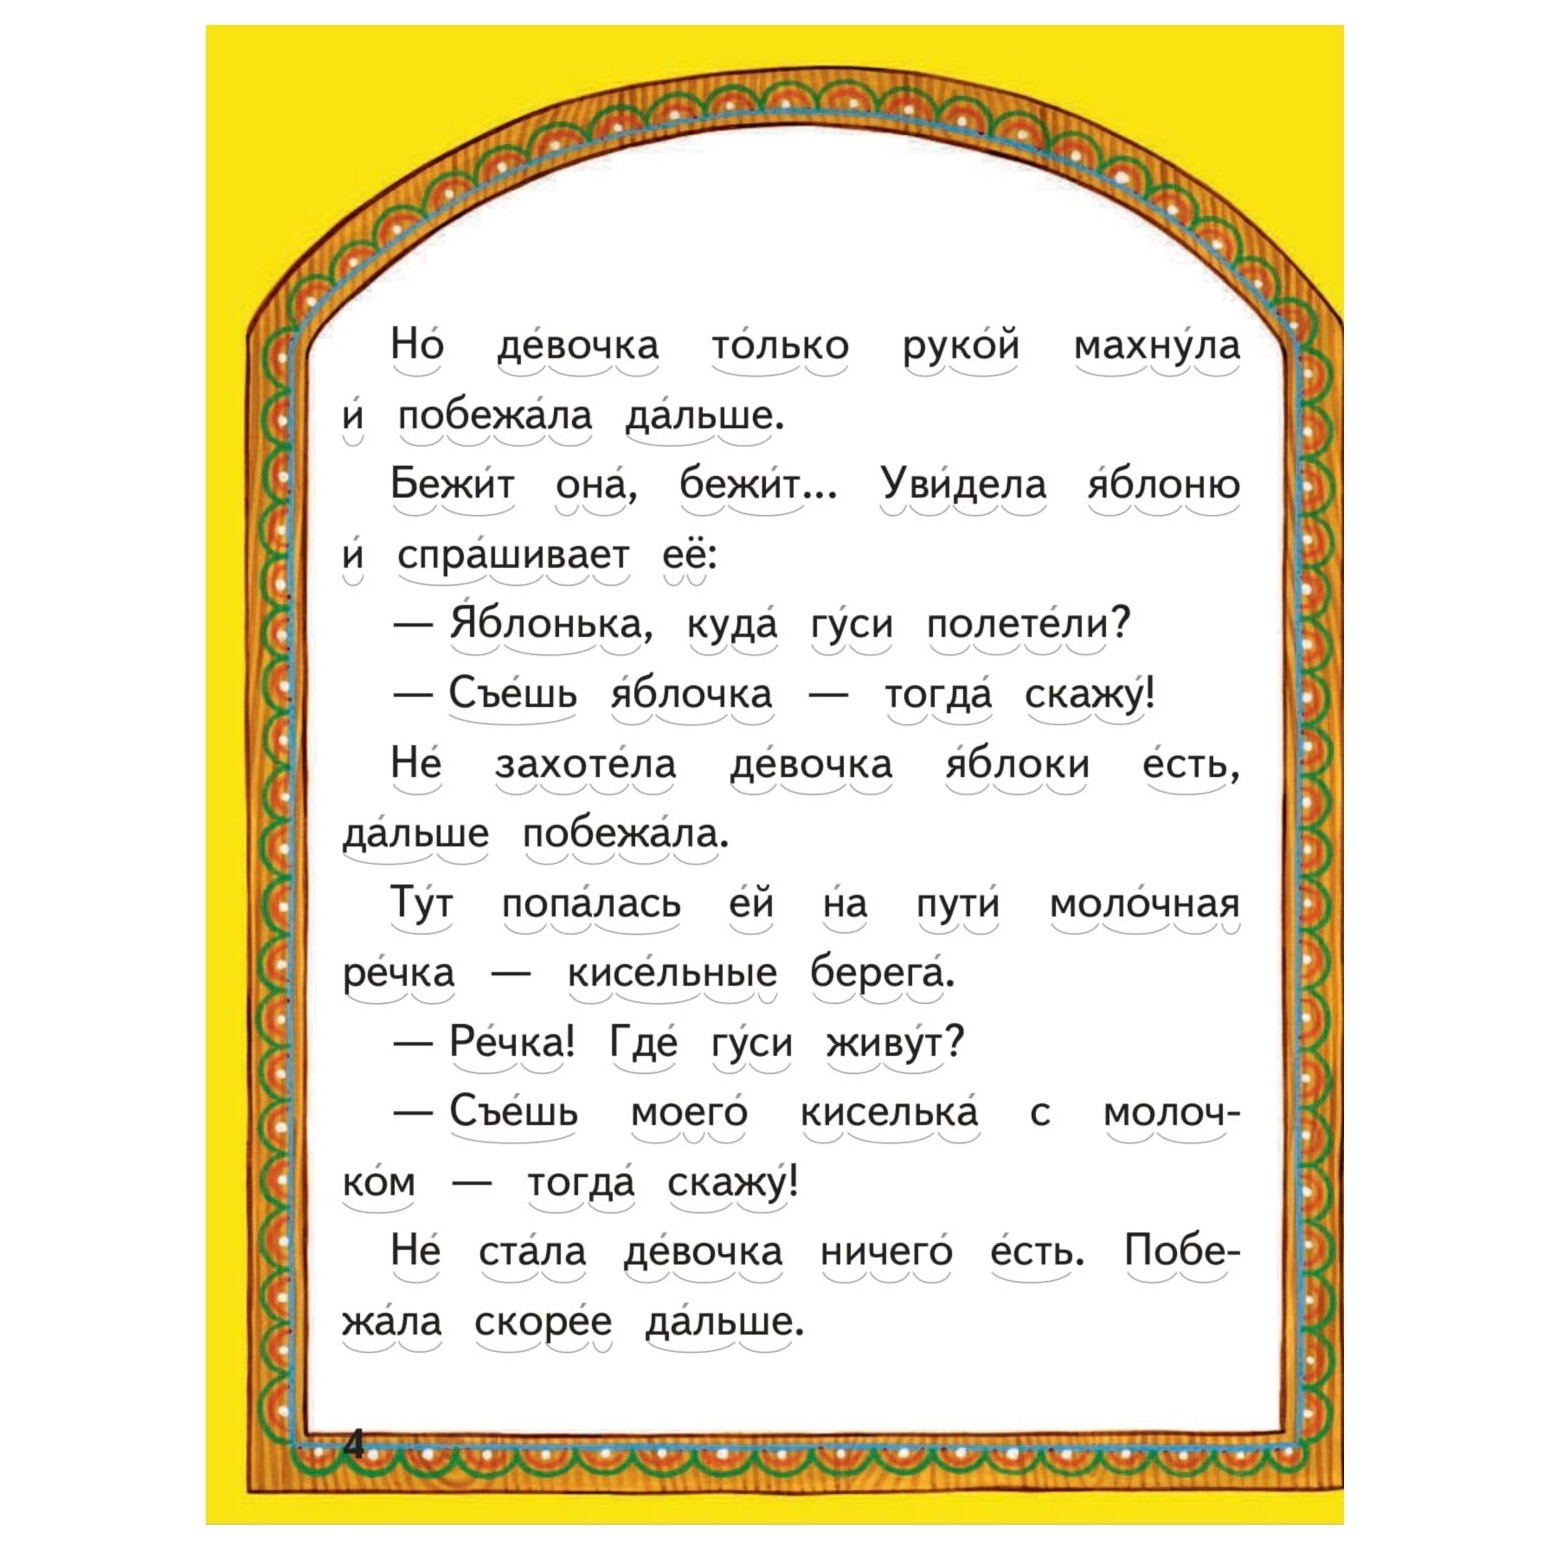 Но́ де́вочка то́лько руко́й махну́ла
и́ побежа́ла да́льше.
Бежи́т она́, бежи́т... Уви́дела я́блоню
и́ спра́шивает её:
— Я́блонька, куда́ гу́си полете́ли?
— Съе́шь я́блочка — тогда́ скажу́!
Не́ захоте́ла де́вочка я́блоки е́сть,
да́льше побежа́ла.
Ту́т попа́лась е́й н́а пути́ моло́чная
ре́чка — кисе́льные берега́.
— Ре́чка! Где́ гу́си живу́т?
— Съе́шь моего́ киселька́ с молоч-
ко́м — тогда́ скажу́!
Не́ ста́ла де́вочка ничего́ е́сть. Побе-
жа́ла скоре́е да́льше.
4